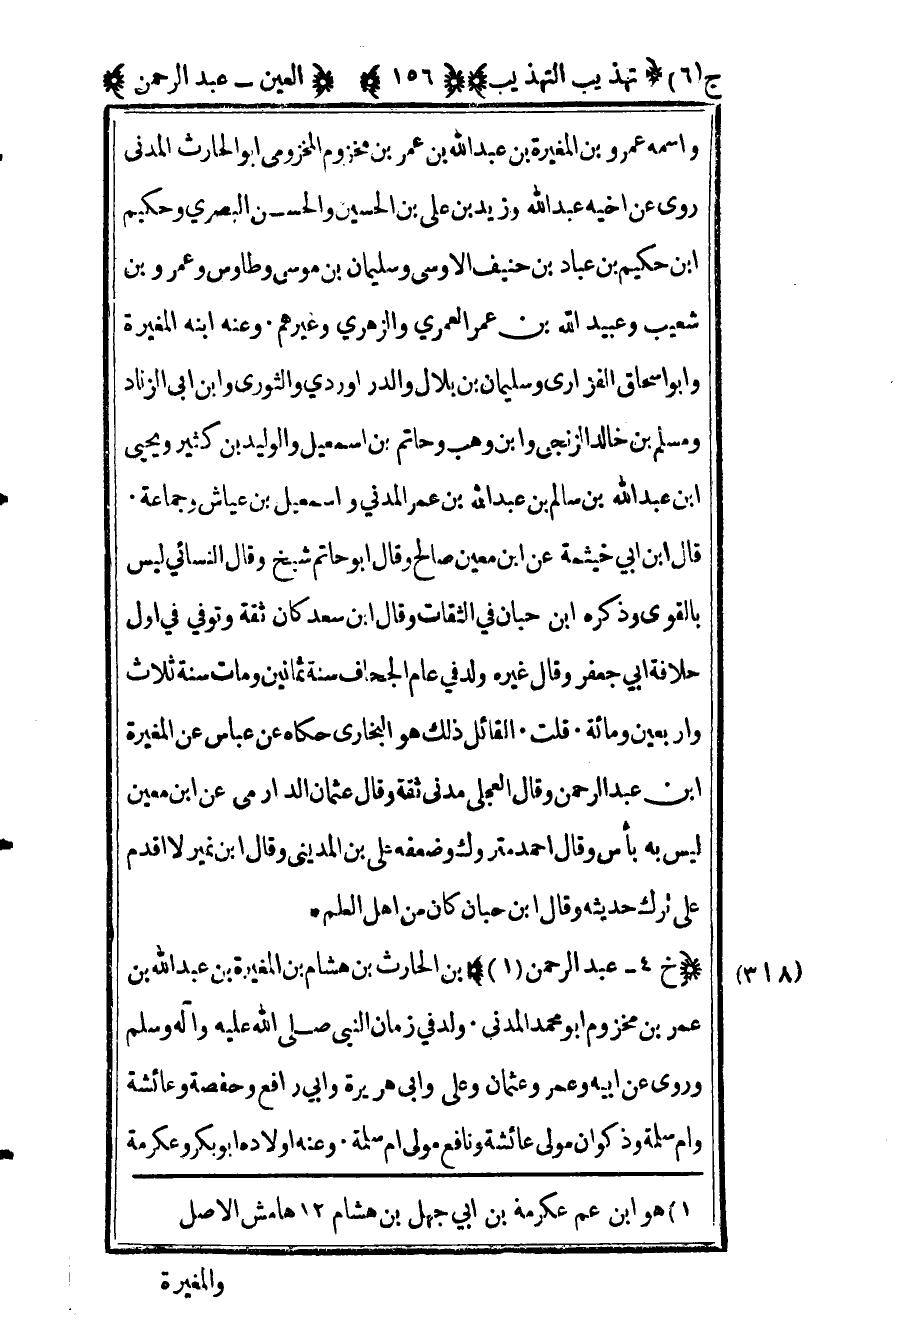 ج(٦) ﴿ تهذيب التهذيب ﴾ ﴿ ١٥٦ ﴾ ﴿ العين - عبد الرحمن ﴾
واسمه عمرو بن المغيرة بن عبدالله بن عمر بن مخزوم المخزومى ابوالحارث المدنى
روى عن اخيه عبدالله وزيد بن على بن الحسين والحسن البصري وحكيم
ابن حكيم بن عباد بن حنيف الاوسى وسليمان بن موسى وطاوس وعمرو بن
شعيب وعبيد الله بن عمر العمري والزهري وغيرهم · وعنه ابنه المغيرة
وابواسحاق الفزارى وسليمان بن بلال والدراوردي والثورى وابن ابى الزناد
ومسلم بن خالد الزنجى وابن وهب وحاتم بن اسمعيل والوليد بن كثير ويحيى
ابن عبدالله بن سالم بن عبدالله بن عمر المدني واسمعيل بن عياش وجماعة ·
قال ابن ابي خيثمة عن ابن معين صالح وقال ابوحاتم شيخ وقال النسائي ليس
بالقوى وذكره ابن حبان في الثقات وقال ابن سعد كان ثقة وتوفي في اول
خلافة ابي جعفر وقال غيره ولد في عام الجحاف سنة ثمانين ومات سنة ثلاث
واربعين ومائة · قلت · القائل ذلك هو البخارى حكاه عن عباس عن المغيرة
ابن عبدالرحمن وقال العجلى مدنى ثقة وقال عثمان الدارمى عن ابن معين
ليس به بأس وقال احمد متروك وضعفه على بن المدينى وقال ابن نمير لا اقدم
على ترك حديثه وقال ابن حبان كان من اهل العلم *
﴿ خ ٤ - عبد الرحمن (١) ﴾ بن الحارث بن هشام بن المغيرة بن عبدالله بن
(٣١٨)
عمر بن مخزوم ابومحمد المدني · ولد في زمان النبى صلى الله عليه وآله وسلم
وروى عن ابيه وعمر وعثمان وعلى وابى هريرة وابي رافع وحفصة وعائشة
وام سلمة وذكوان مولى عائشة ونافع مولى ام سلمة · وعنه اولاده ابوبكر وعكرمة
١) هو ابن عم عكرمة بن ابي جهل بن هشام ١٢ هامش الاصل
والمغيرة